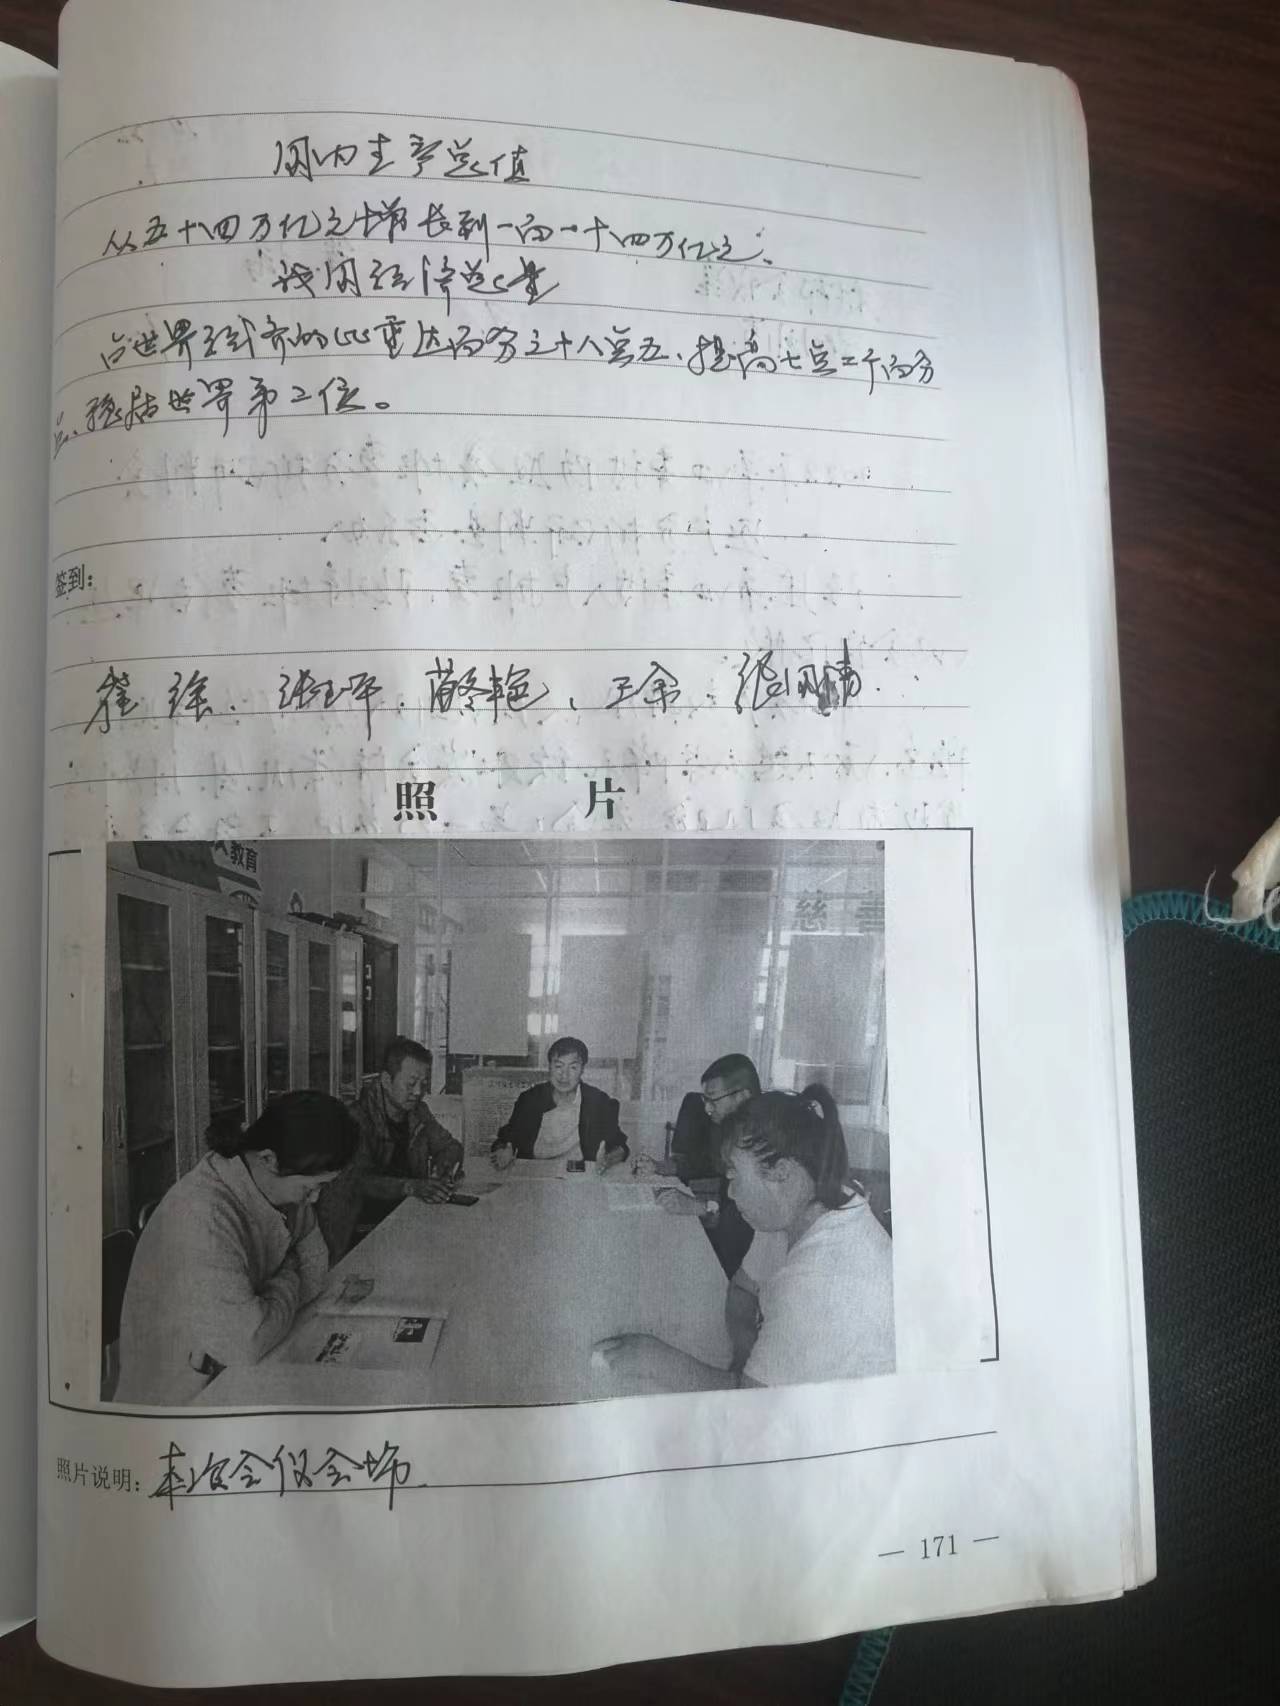 国内生产总值
从五十四万亿元增长到一百一十四万亿元、
我国经济总量
占世界经济的比重达百分之十八点五、提高七点二个百分
点、稳居世界第二位。
签到：
崔 徐、张玉军、苗冬艳、王余、张国清
照 片
教育
慈善
照片说明：本次会议会场
— 171 —